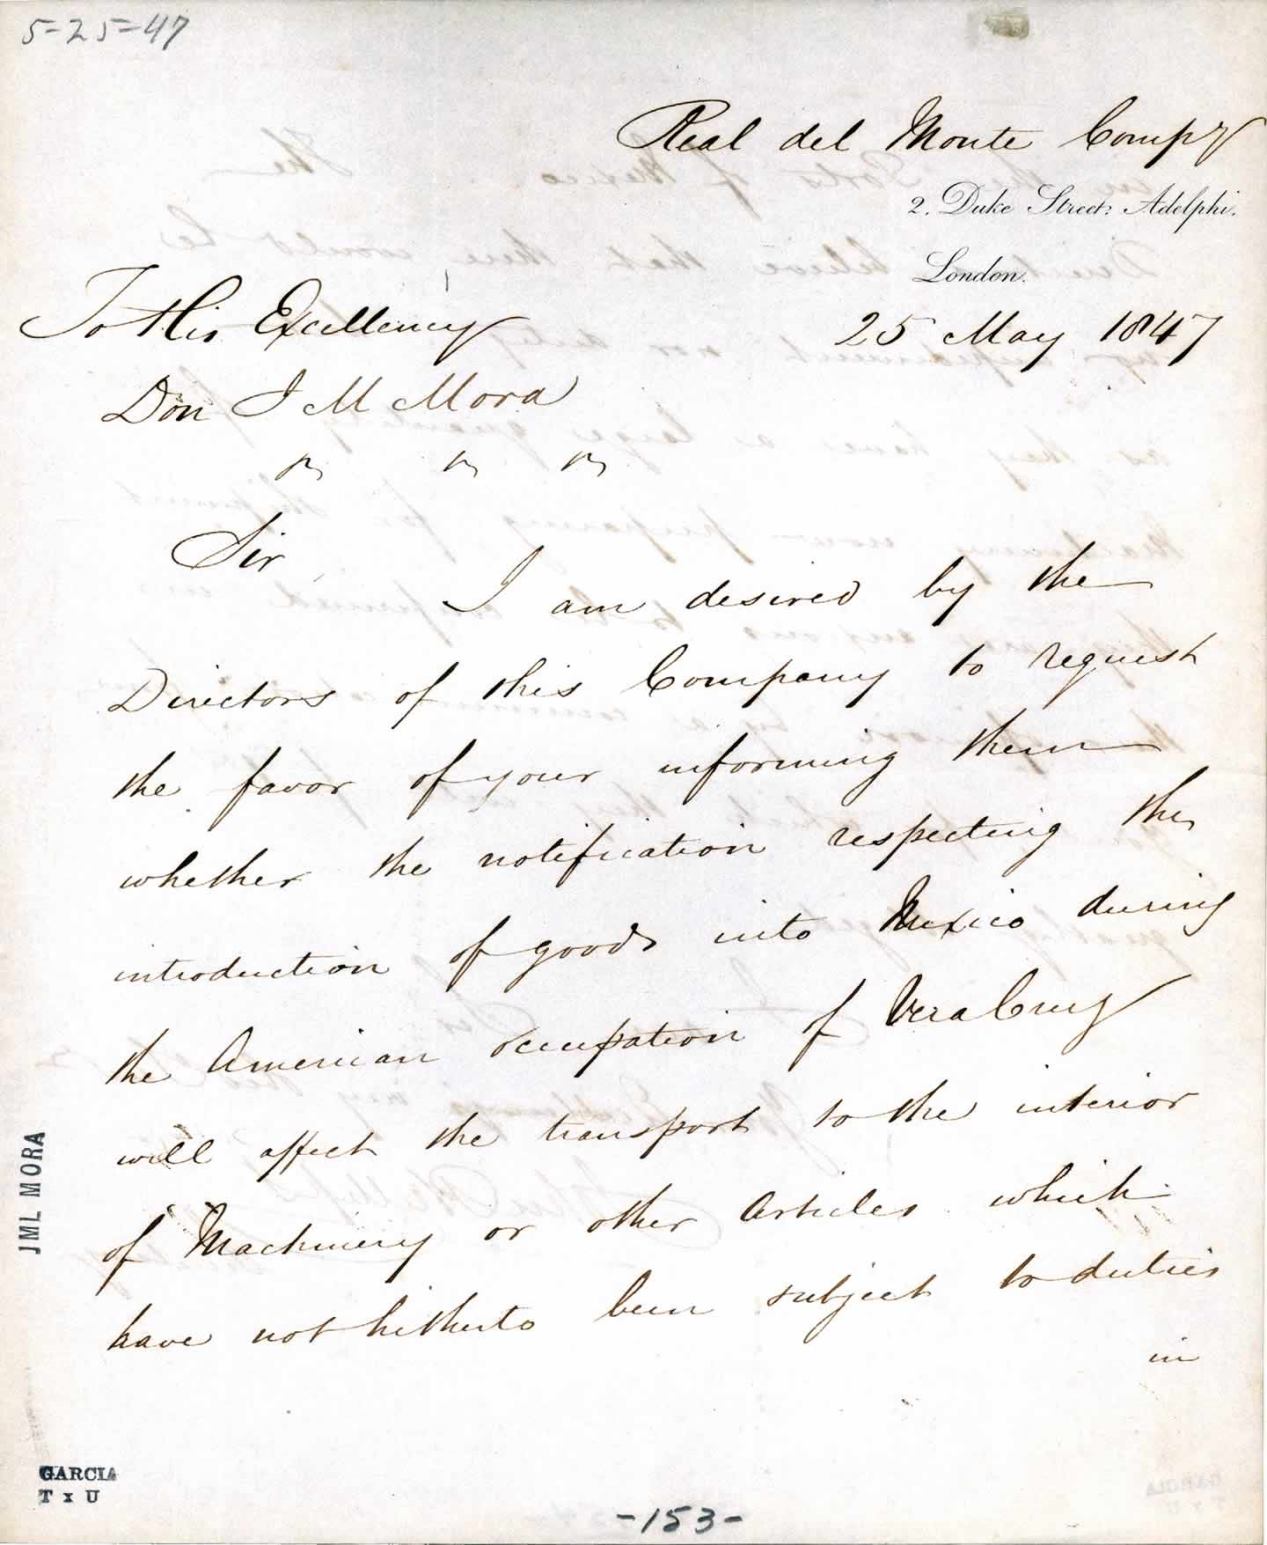 5-25-47
Real del Monte Compy
2, Duke Street, Adelphi.
London.
25 May 1847
To His Excellency
Don J M Mora
Sir,
I am desired by the
Directors of this Company to request
the favor of your informing them
whether the notification respecting the
introduction of goods into Mexico during
the American occupation of Vera Cruz
will affect the transport to the interior
of Machinery or other Articles which
have not hitherto been subject to duties
in
JML MORA
GARCIA
T x U
-153-